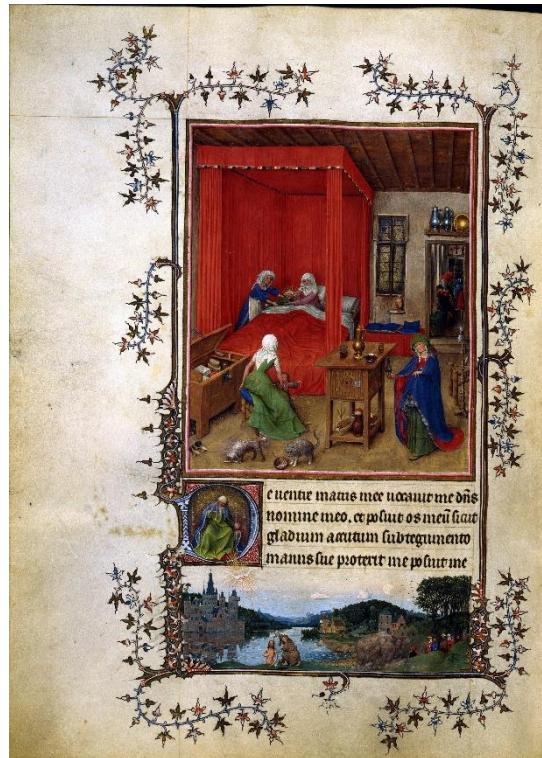 e uentre matris mee uocauit me dn̄s
nomine meo. et posuit os meū sicut
gladium acutum sub tegumento
manus sue protexit me posuit me